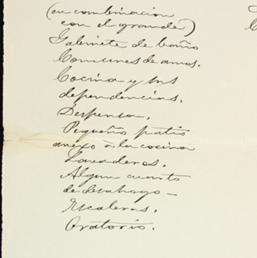 (en combinacion
con el grande)
Gabinete de baño
Comunes de amos.
Cocina y sus
dependencias.
Despensa.
Pequeño patio
anexo à la cocina
Lavaderos.
Algun cuarto
de desahogo—
Escaleras.
Oratorio.